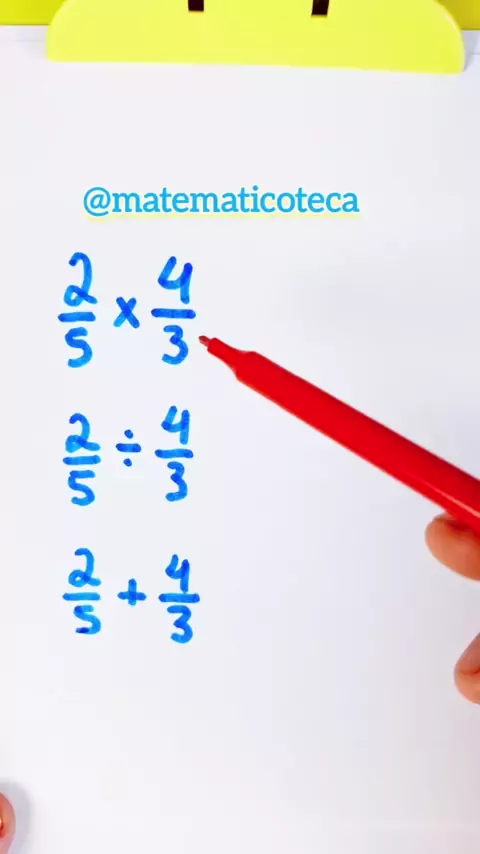 @matematicoteca
2/5 × 4/3
2/5 ÷ 4/3
2/5 + 4/3